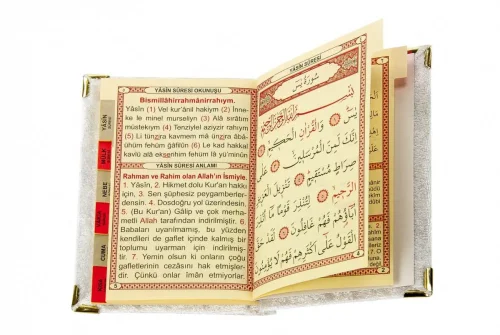 YÂSÎN SÛRESİ OKUNUŞU
Bismillâhirrahmânirrahıym.
Yâsîn (1) Vel kur'ânil hakiym (2) İnne-
ke le minel murseliyn (3) Alâ sırâtim
müstekıym (4) Tenziylel aziyzir rahıym
(5) Li tünzira kavmem mâ ünzira âbâ-
ühüm fehüm ğâfilûn (6) Le kad hakkal
kavlü alâ ekserihim fehüm lâ yü'minûn
YÂSÎN SÛRESİ ANLAMI
Rahman ve Rahim olan Allah'ın İsmiyle.
1. Yâsîn, 2. Hikmet dolu Kur'an hakkı
için, 3. Sen şüphesiz peygamberler-
densin. 4. Dosdoğru yol üzerindesin.
5. (Bu Kur'an) Gâlip ve çok merha-
metli Allah tarafından indirilmiştir. 6.
Babaları uyarılmamış, bu yüzden
kendileri de gaflet içinde kalmış bir
toplumu uyarman için indirilmiş-
tir. 7. Yemin olsun ki onların çoğu
gafletlerinin cezasını hak etmişler-
dir. Çünkü onlar îman etmiyorlar.
5
YÂSÎN
MÜLK
NEBE
CUMA
YÂSÎN SÛRESİ
سُورَةُ يٰسٓ
بِسْمِ اللّٰهِ الرَّحْمٰنِ الرَّحِيمِ
يٰسٓ وَالْقُرْاٰنِ الْحَكِيمِ
اِنَّكَ لَمِنَ الْمُرْسَلِينَ عَلٰى
صِرَاطٍ مُسْتَقِيمٍ تَنْزِيلَ الْعَزِيزِ
الرَّحِيمِ لِتُنْذِرَ قَوْمًا مَٓا اُنْذِرَ
اٰبَٓاؤُ۬هُمْ فَهُمْ غَافِلُونَ لَقَدْ حَقَّ
الْقَوْلُ عَلٰٓى اَكْثَرِهِمْ فَهُمْ لَا يُؤْمِنُونَ
4